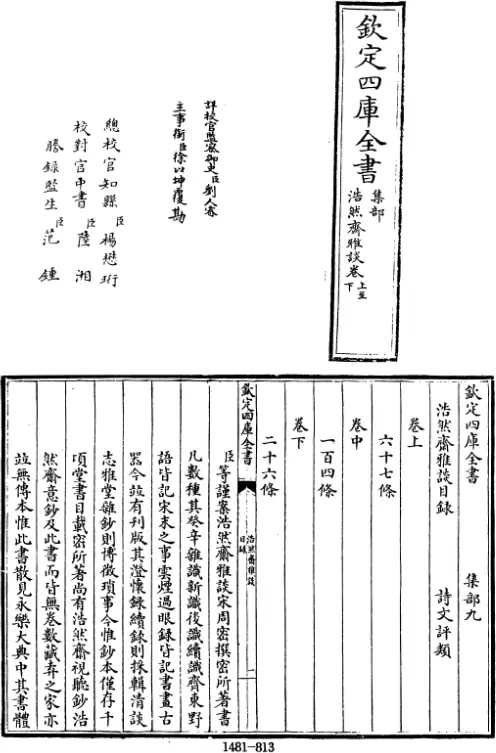 欽定四庫全書
集部
浩然齋雅談卷上至下
詳校官監察御史臣劉人睿
主事銜臣徐以坤覆勘
總校官知縣臣楊懋珩
校對官中書臣陸湘
謄錄監生臣范鍾
欽定四庫全書 集部九
浩然齋雅談目錄 詩文評類
卷上
六十七條
卷中
一百四條
卷下
二十六條
欽定四庫全書
浩然齋雅談目錄
一
臣等謹案浩然齋雅談宋周密撰密所著書
凡數種其癸辛雜識新識後識續識齊東野
語皆記宋末之事雲煙過眼録皆記書畫古
器今竝有刊版其澄懷録續録則採輯清談
志雅堂雜鈔則博徵瑣事今惟鈔本僅存千
項堂書目載密所著尚有浩然齋視聽鈔浩
然齋意鈔及此書而皆無卷數藏弆之家亦
竝無傳本惟此書散見永樂大典中其書體
1481-813